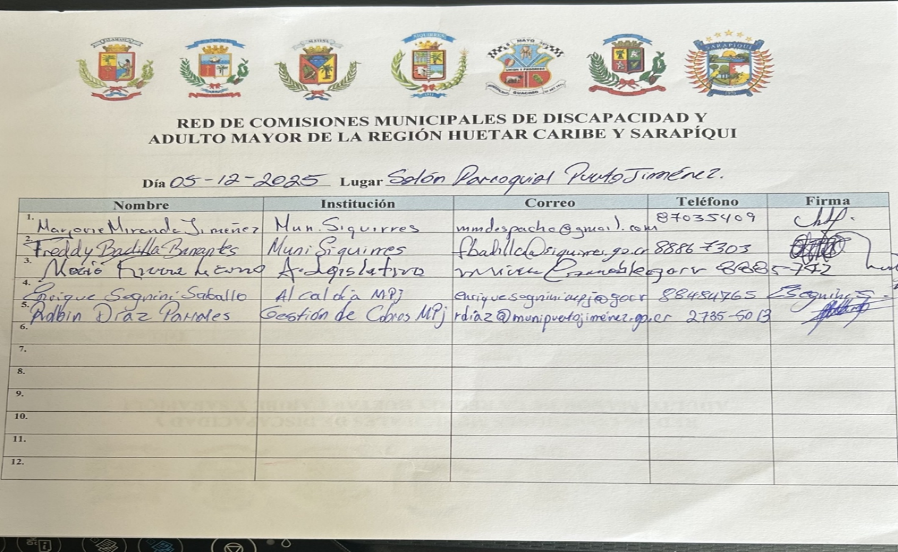 SARAPIQUI
RED DE COMISIONES MUNICIPALES DE DISCAPACIDAD Y
ADULTO MAYOR DE LA REGIÓN HUETAR CARIBE Y SARAPÍQUI
Día 05-12-2025 Lugar Salón Parroquial Puerto Jiménez.
Nombre Institución Correo Teléfono Firma
1. Marjorie Miranda Jiménez Mun. Siquirres mmdespacho@gmail.com 87035409
2. Freddy Badilla Muni Siquirres 8886 7303
3. Rivera A. Legislativa
4. Enrique Segnini Saballo Alcaldía MPJ 88484765
5. Robin Díaz Gestión de Cobros MPj rdiaz@munipuertojimenez.go.cr 2735-5013
6.
7.
8.
9.
10.
11.
12.